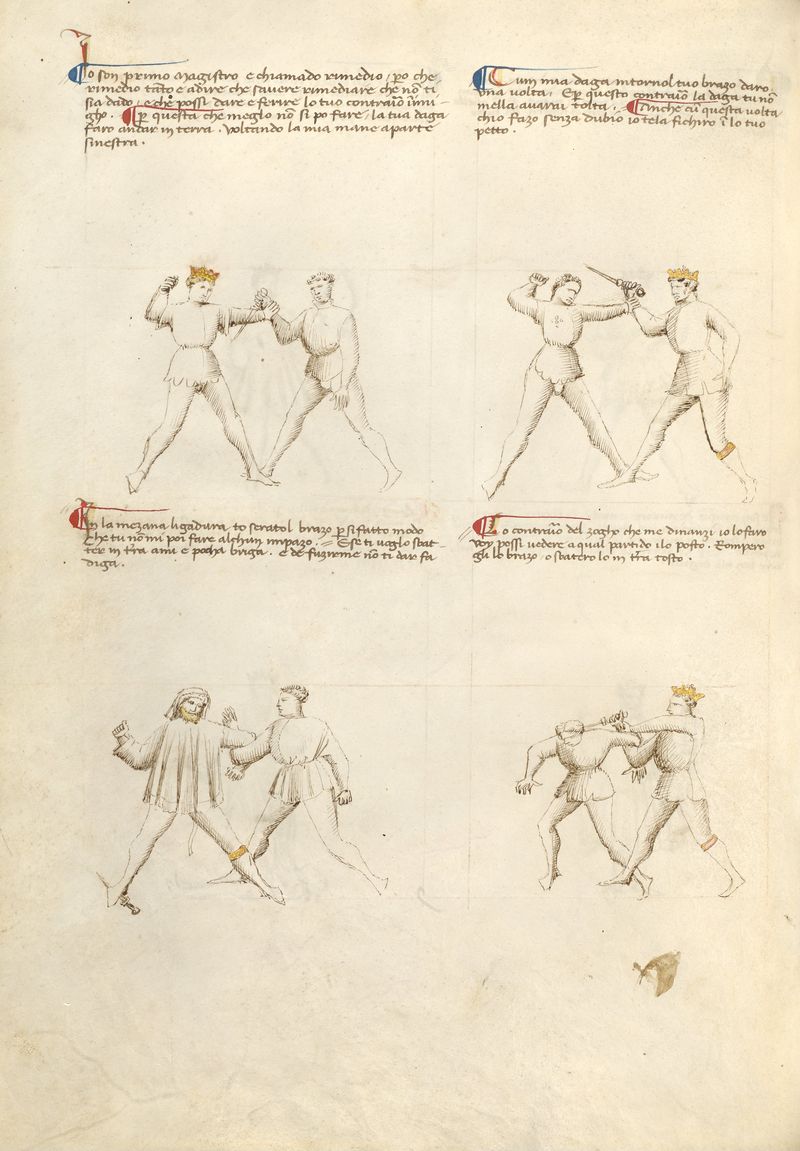 Io son primo Magistro e chiamado rimedio, po che
rimedio tãto e adire che savere rimediare che nõ ti
sia dado, e che possi dare e ferire lo tuo contrario inimi-
gho. Per questa che meglo nõ si po fare, la tua daga
faro andar in terra. Voltando la mia mane aparte
sinestra.
Cum mia daga intorno l tuo brazo daro
una volta. E per questo contrario la daga tu nõ
mella avarai tolta. Anche cũ questa volta
chio fazo senza dubio io tela fichiro ĩ lo tuo
petto.
In la mezana ligadura to serato l brazo p si fatto modo
Che tu nõ mi poi fare alchun impazo. E se ti voglo sbat-
ter in t'ra a mi e pocha briga. e de fuzirme nõ ti dar fa
diga.
Lo contrario del zogho che me dinanzi io lo faro
Voy possi vedere a qual partido i lo posto. Rompero
gli lo brazo, o sbatero lo in t'ra tosto.